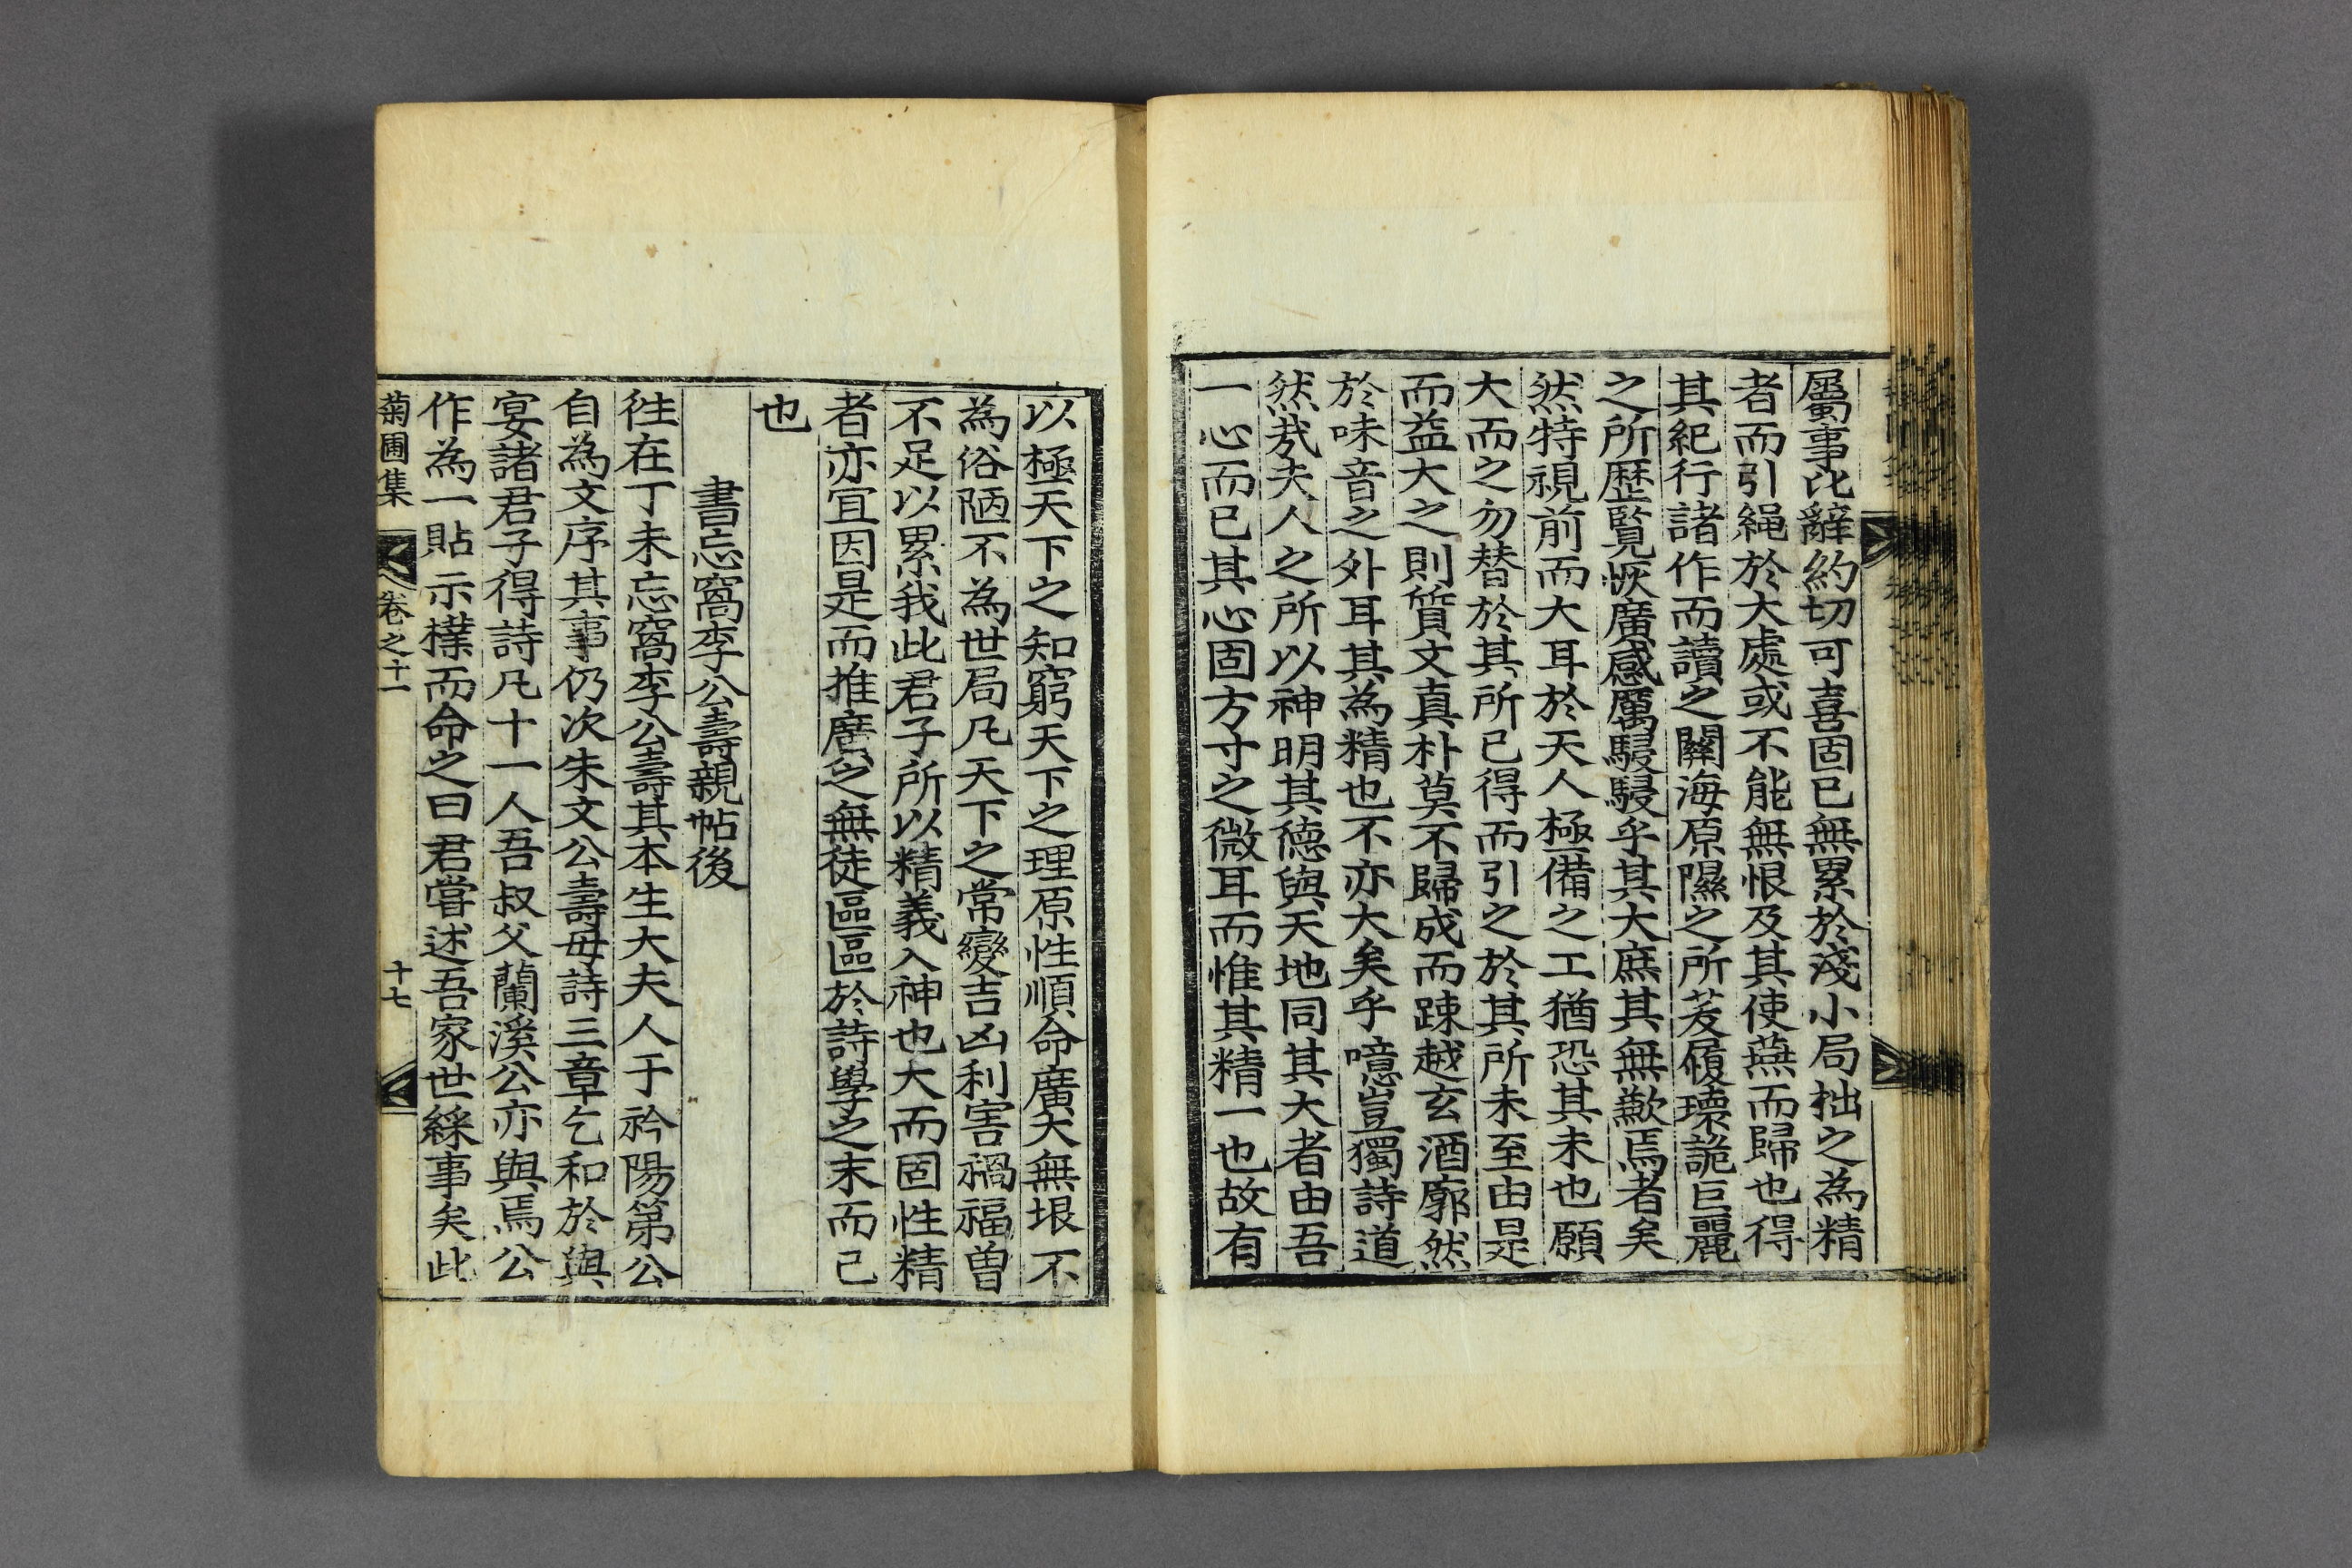 屬事比辭約切可喜固已無累於淺小局拙之為精
者而引繩於大處或不能無恨及其使燕而歸也得
其紀行諸作而讀之關海原隰之所茇履瓌詭巨麗
之所歷覽恢廣感厲駸駸乎其大庶其無歉焉者矣
然特視前而大耳於天人極備之工猶恐其未也願
大而之勿替於其所已得而引之於其所未至由是
而益大之則質文真朴莫不歸成而踈越玄酒廓然
於味音之外耳其為精也不亦大矣乎噫豈獨詩道
然㦲夫人之所以神明其德與天地同其大者由吾
一心而已其心固方寸之微耳而惟其精一也故有
以極天下之知窮天下之理原性順命廣矣無垠不
為俗陋不為世局凡天下之常變吉凶利害禍福曾
不足以累我此君子所以精義入神也大而固性精
者亦宜因是而推廣之無徒區區於詩學之末而已
也
書忘窩李公壽親帖後
徃在丁未忘窩李公壽其本生大夫人于衿陽第公
自為文序其事仍次朱文公壽母詩三章乞和於與
宴諸君子得詩凡十一人吾叔父蘭溪公亦與焉公
作為一貼示㰒而命之曰君嘗述吾家世綵事矣此
菊圃集 卷之十一 十七